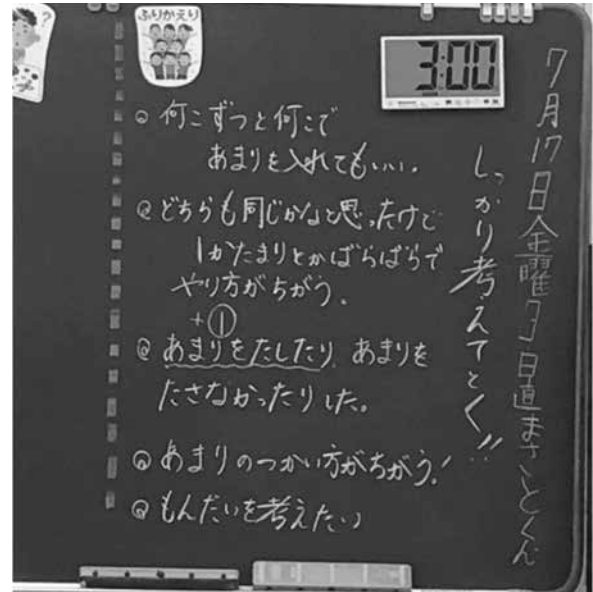 7月17日金曜日 日直まさとくん
しっかり考えてとく!!
ふりかえり
?
3:00
◎何こずつと何こで
あまりを入れてもいい。
◎どちらも同じかなと思ったけど
1かたまりとかばらばらで
やり方がちがう。
+①
◎あまりをたしたり、あまりを
たさなかったりした。
◎あまりのつかい方がちがう!
◎もんだいを考えたい